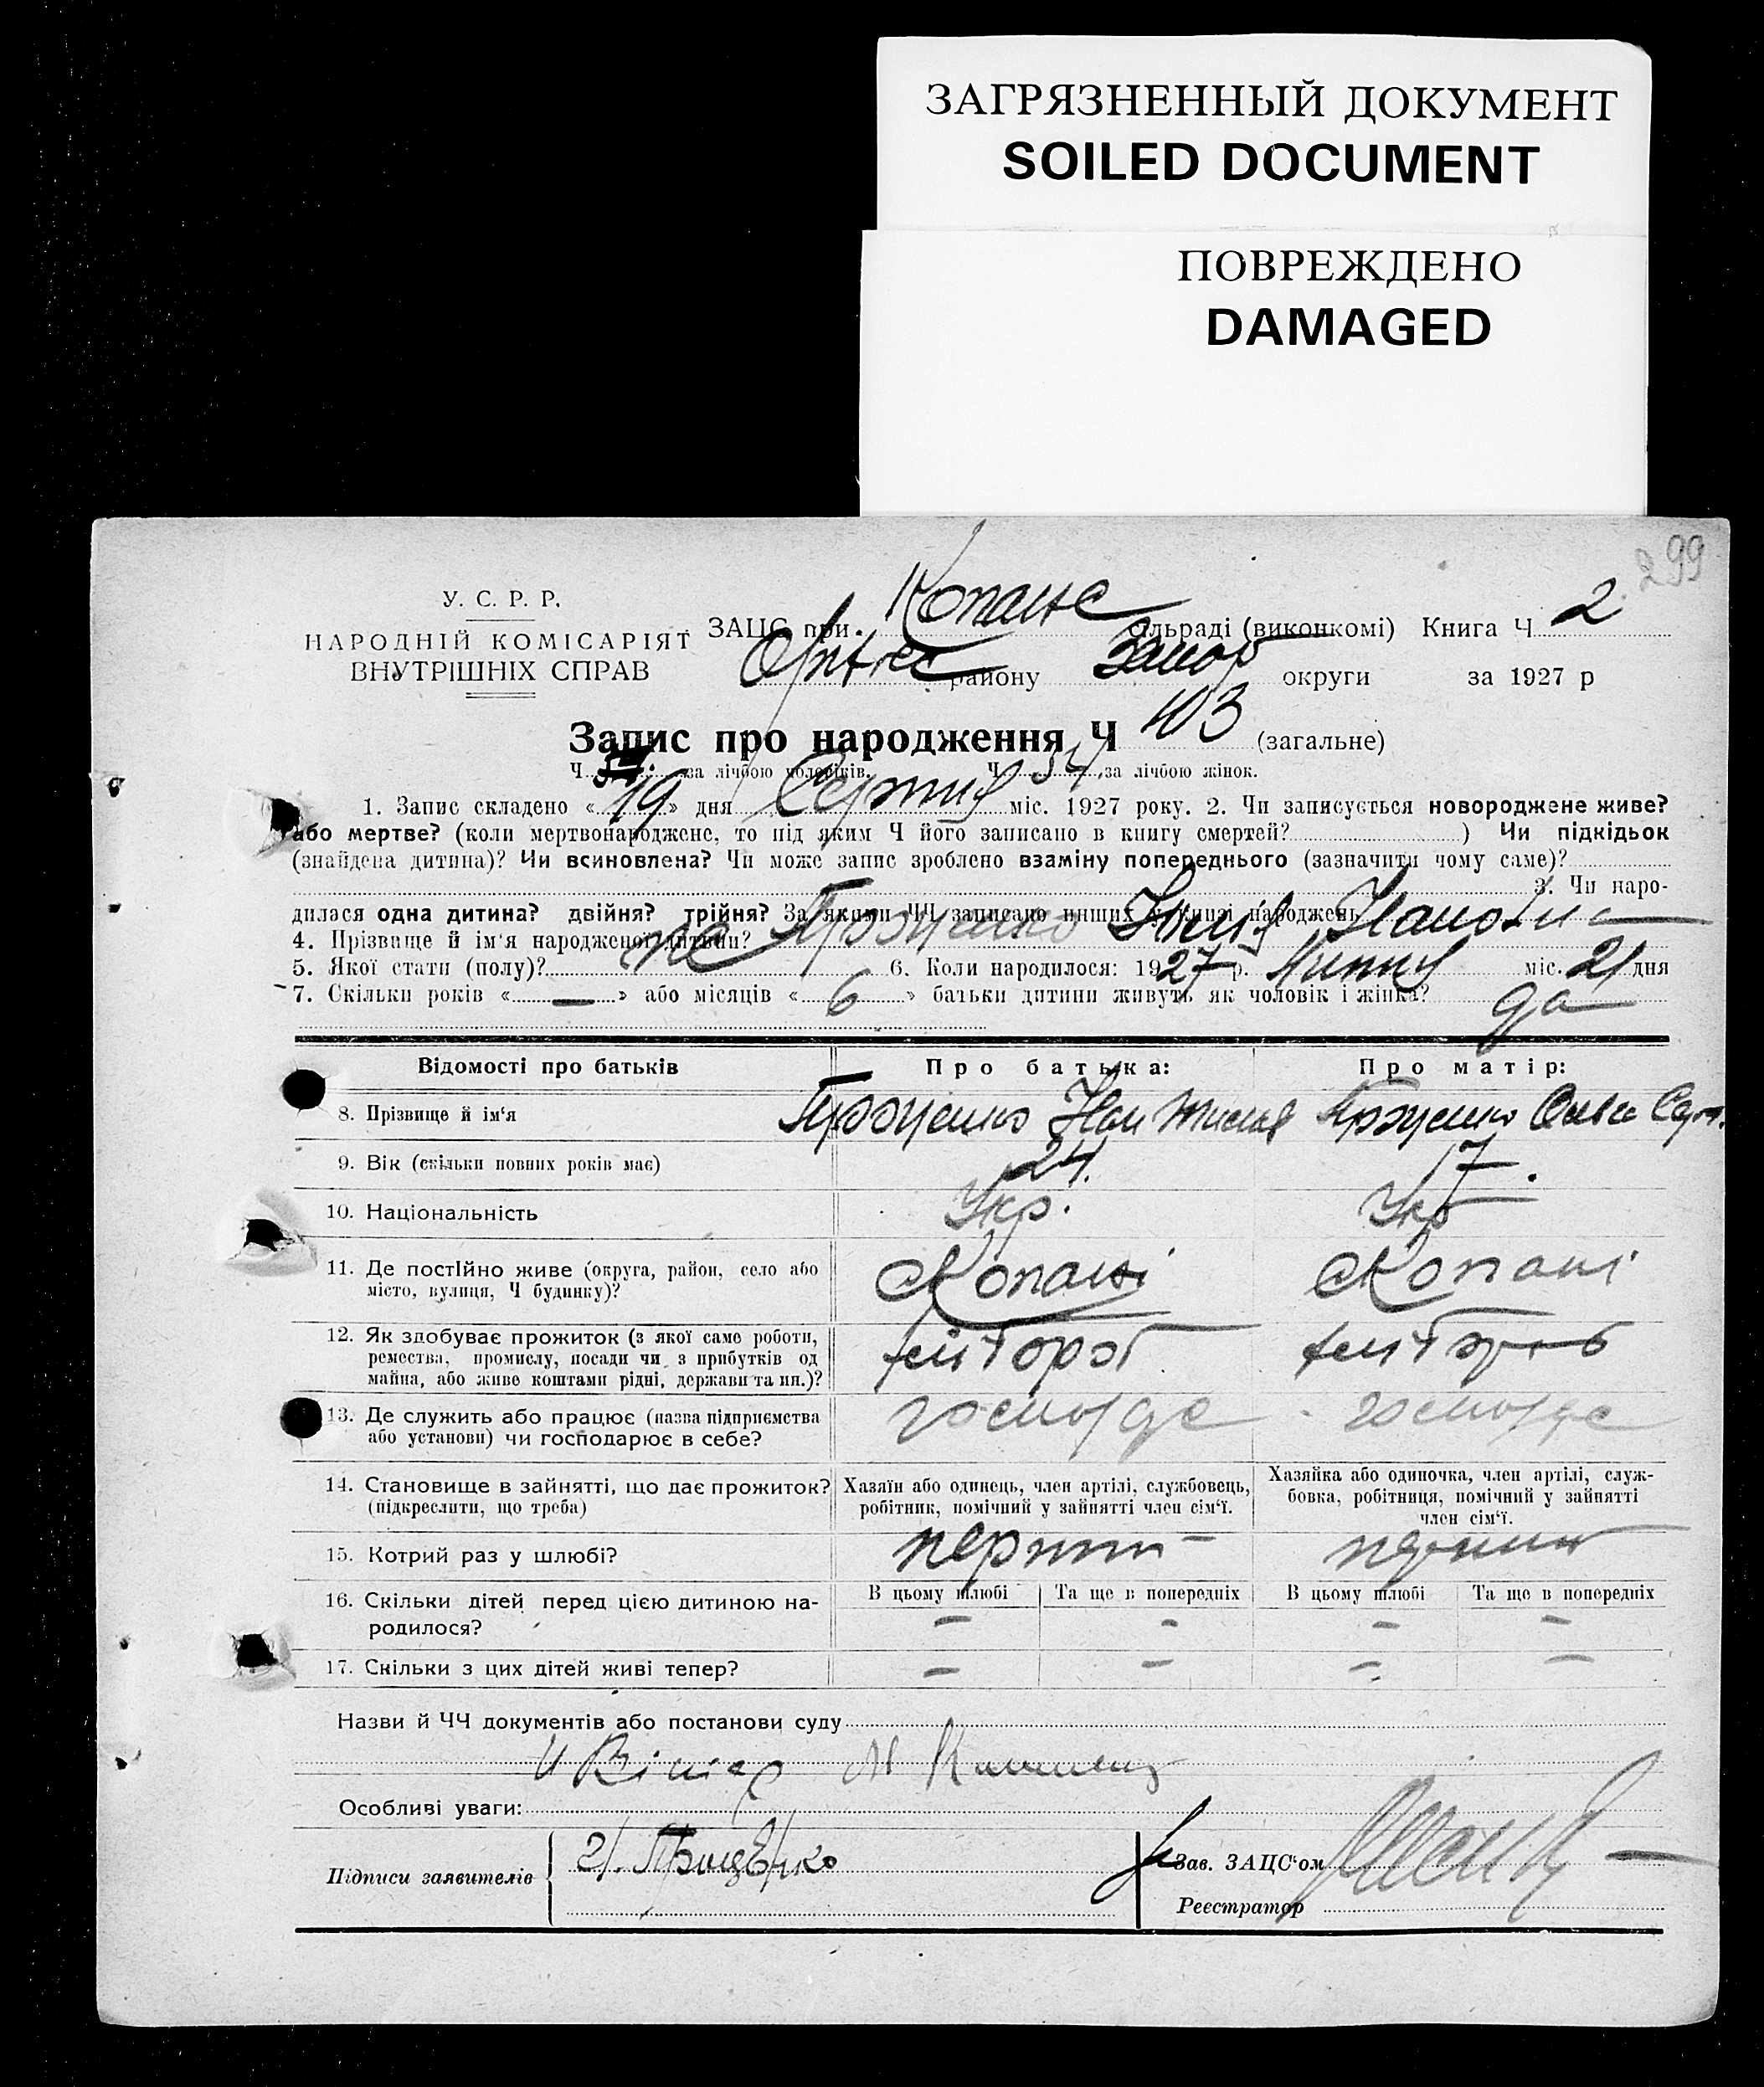 ЗАГРЯЗНЕННЫЙ ДОКУМЕНТ
SOILED DOCUMENT
ПОВРЕЖДЕНО
DAMAGED
299
У. С. Р. Р.
НАРОДНІЙ КОМІСАРІЯТ
ВНУТРІШНІХ СПРАВ
ЗАЦС при Копансь сільраді (виконкомі) Книга Ч 2
району Запор округи за 1927 р
Запис про народження Ч 103 (загальне)
Ч за лічбою чоловіків. Ч 54 за лічбою жінок.
1. Запис складено «19» дня Серпня міс. 1927 року. 2. Чи записується новороджене живе?
або мертве? (коли мертвонароджене, то під яким Ч його записано в книгу смертей? ) Чи підкідьок
(знайдена дитина)? Чи всиновлена? Чи може запис зроблено взаміну попереднього (зазначити чому саме)?
3. Чи наро-
дилася одна дитина? двійня? трійня? За якими ЧЧ записано инших у книзі народжень
4. Прізвище й ім'я народженої дитини? Ивановна
5. Якої стати (полу)? 6. Коли народилося: 1927 р. Липня міс. 21 дня
7. Скільки років «—» або місяців «6» батьки дитини живуть як чоловік і жінка? да
Відомості про батьків Про батька: Про матір:
8. Прізвище й ім'я
9. Вік (скільки повних років має) 24. 17.
10. Національність Укр. Укр
11. Де постІйно живе (округа, район, село або
місто, вулиця, Ч будинку)? с Копані с Копані
12. Як здобуває прожиток (з якої саме роботи,
ремества, промислу, посади чи з прибутків од
майна, або живе коштами рідні, держави та ин.)?
13. Де служить або працює (назва підприємства
або установи) чи господарює в себе?
14. Становище в зайнятті, що дає прожиток?
(підкреслити, що треба)
Хазяїн або одинець, член артілі, службовець,
робітник, помічний у зайнятті член сім'ї.
Хазяйка або одиночка, член артілі, служ-
бовка, робітниця, помічний у зайнятті
член сім'ї.
15. Котрий раз у шлюбі? перший
16. Скільки дітей перед цією дитиною на-
родилося?
В цьому шлюбі Та ще в попередніх В цьому шлюбі Та ще в попередніх
— — — —
17. Скільки з цих дітей живі тепер? — — — —
Назви й ЧЧ документів або постанови суду
Особливі уваги:
Підписи заявителів
Зав. ЗАЦС'ом
Реєстратор